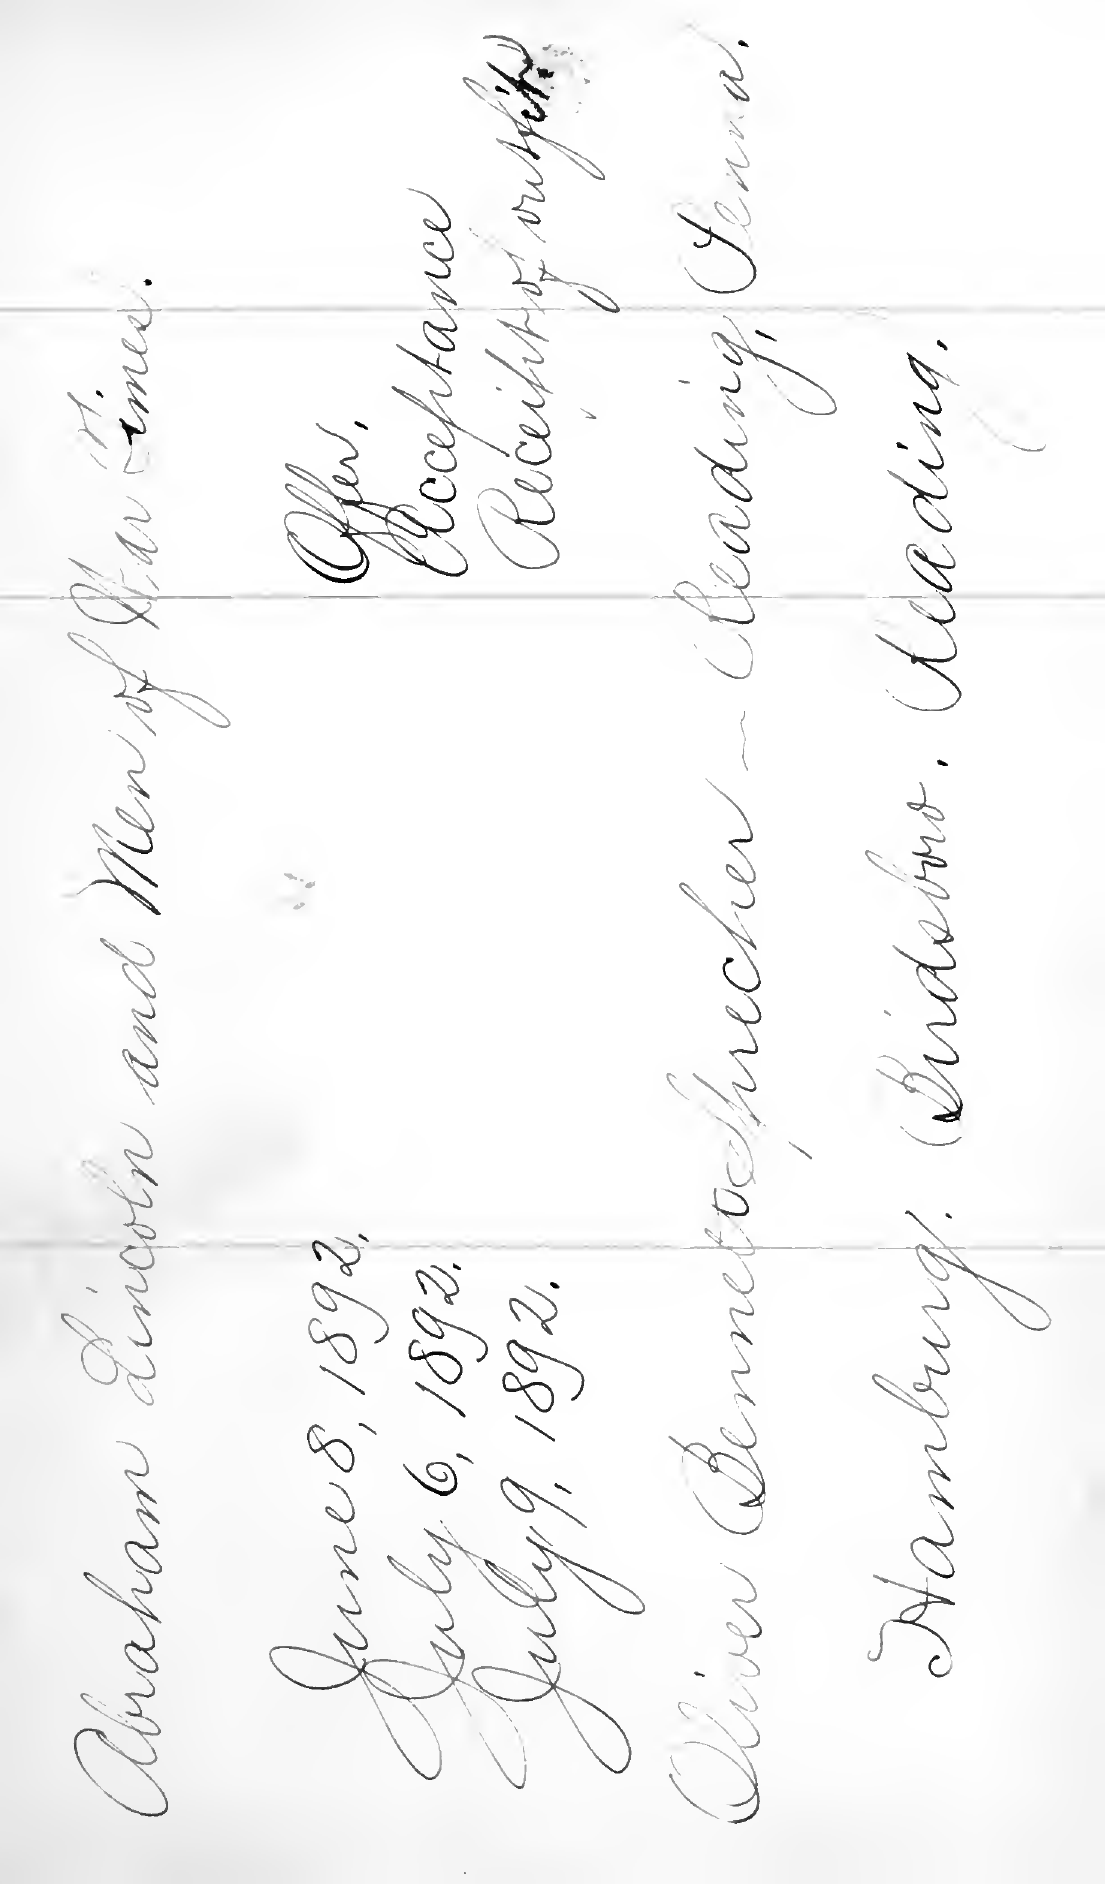 Abraham Lincoln and Men of War Times.
June 8, 1892. Offer.
July 6, 1892. Acceptance
July 9, 1892. Receipt of outfit.
Oliver Bennet Shrecher — Reading, Penna.
Hamburg. Birdsboro. Reading.